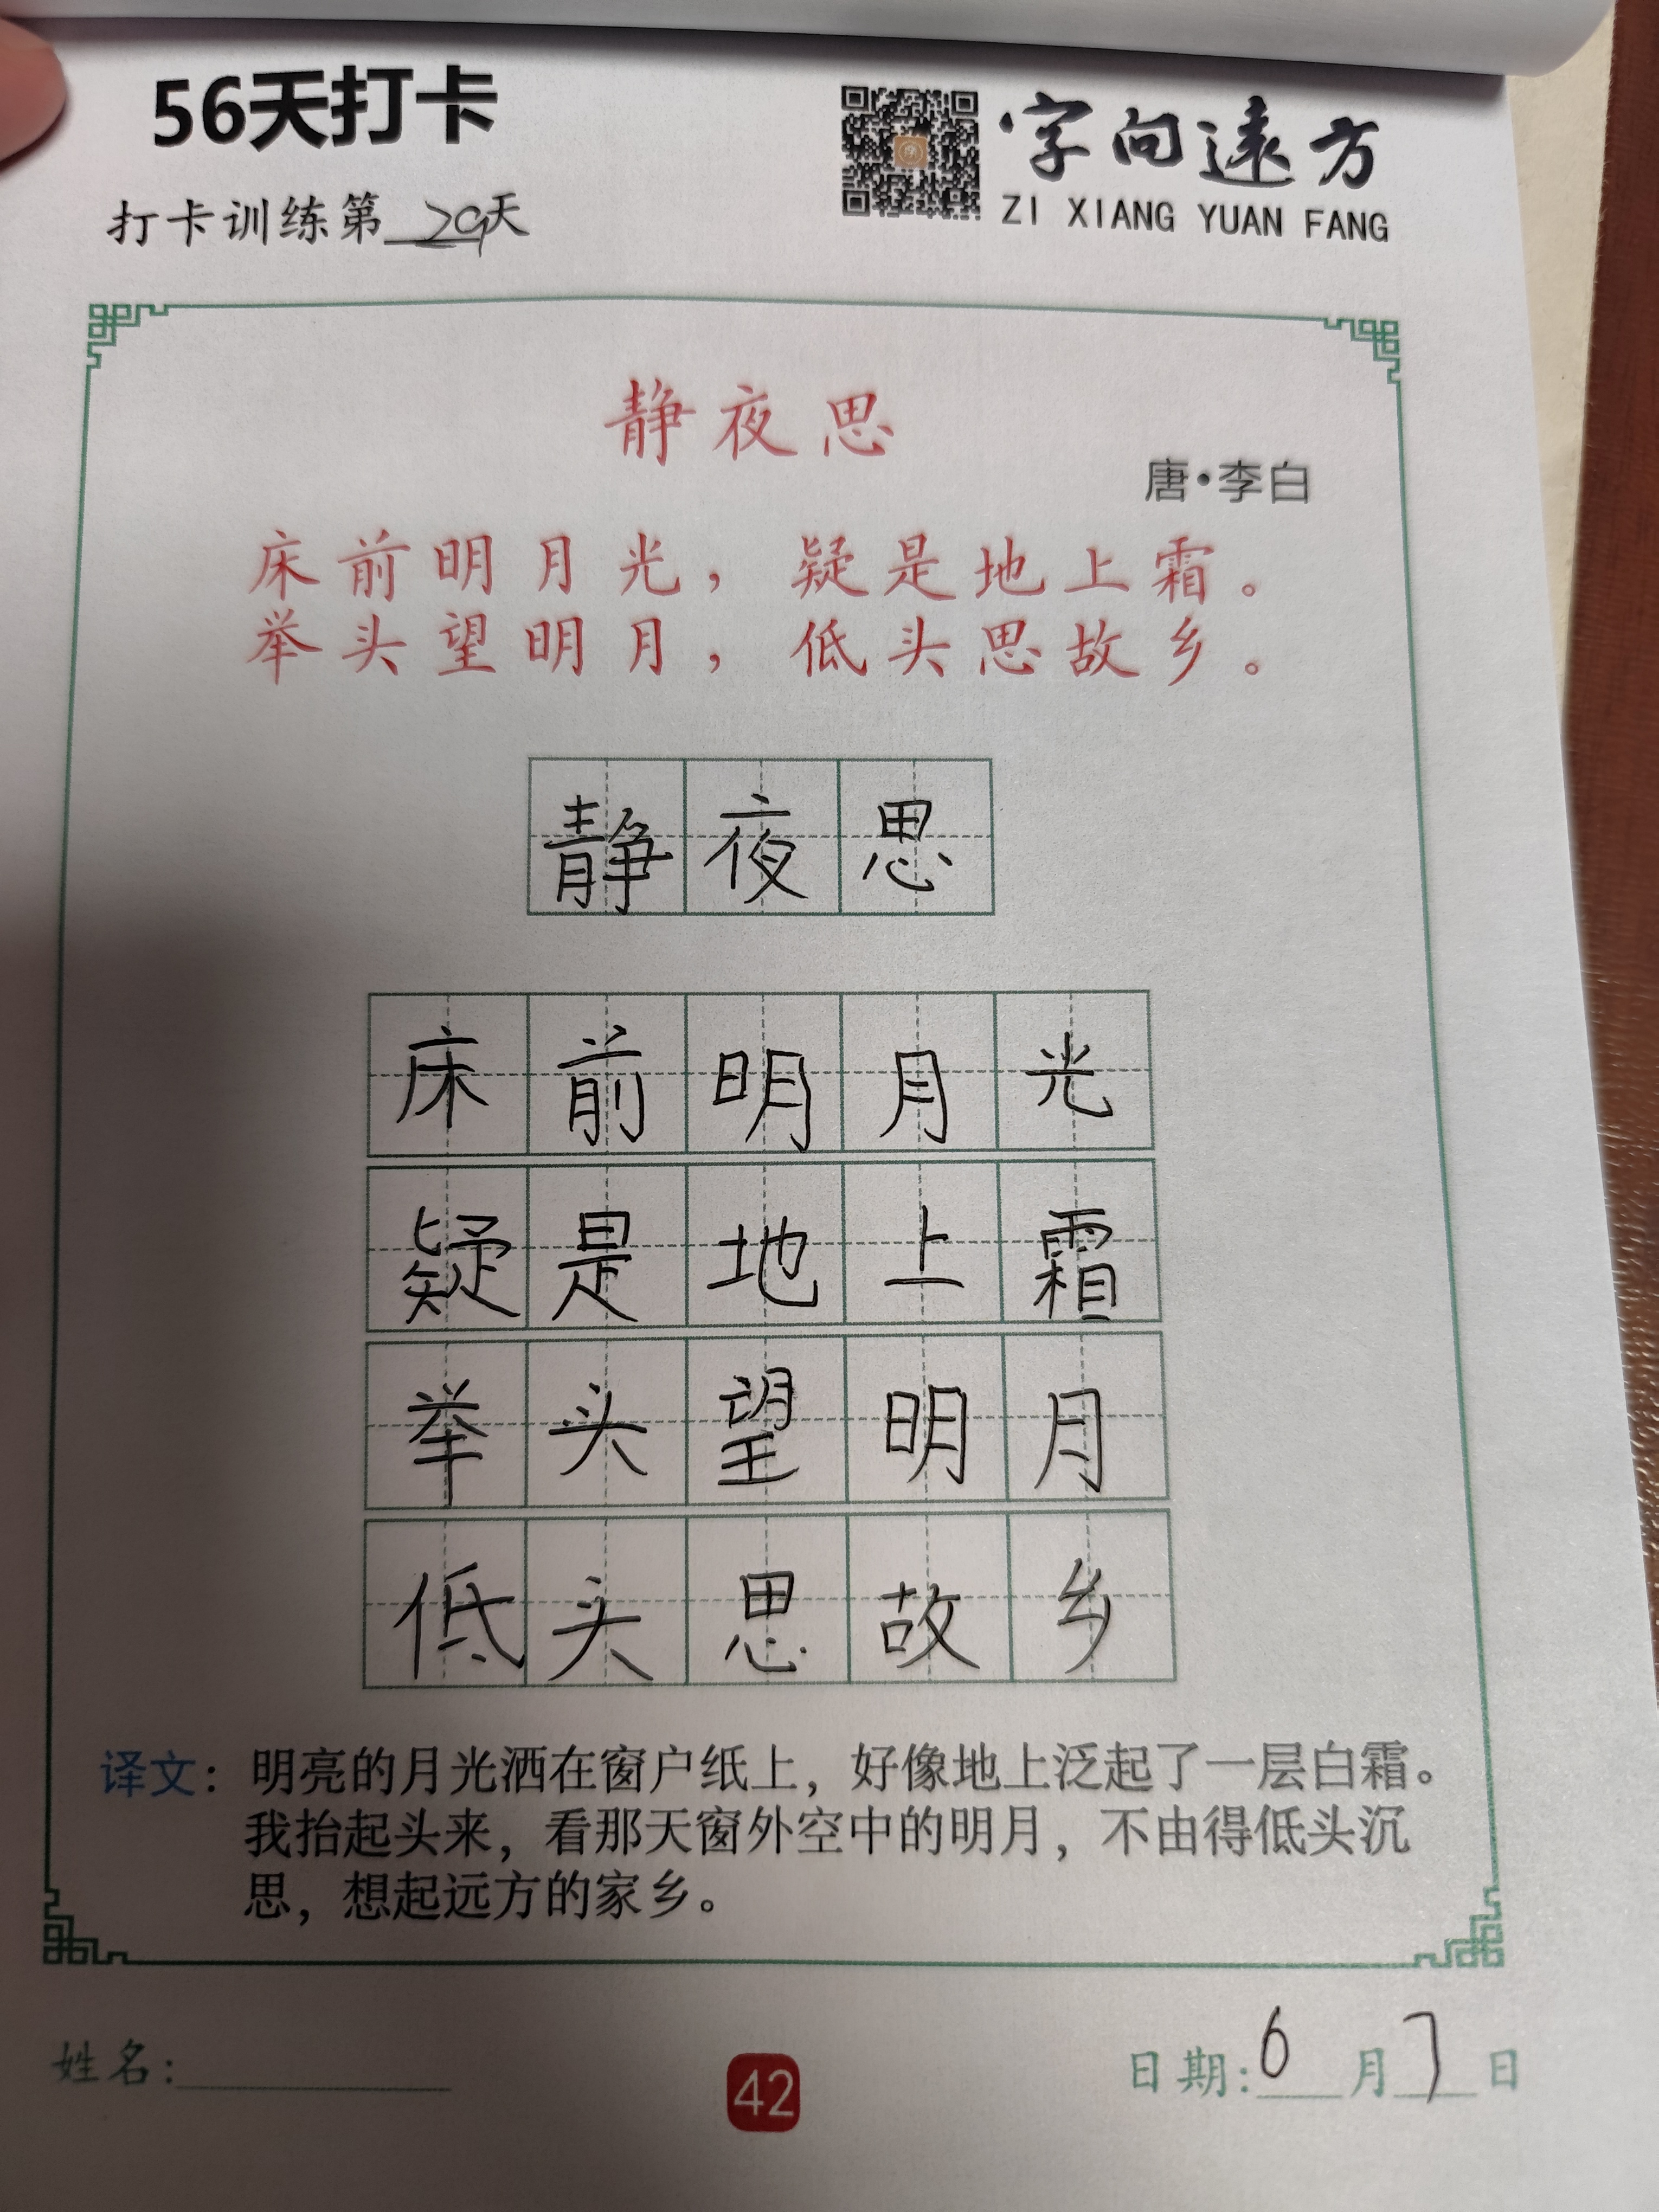 56天打卡
字向远方
ZI XIANG YUAN FANG
打卡训练第29天
静夜思
唐·李白
床前明月光，疑是地上霜。
举头望明月，低头思故乡。
静夜思
床前明月光
疑是地上霜
举头望明月
低头思故乡
译文：明亮的月光洒在窗户纸上，好像地上泛起了一层白霜。
我抬起头来，看那天窗外空中的明月，不由得低头沉
思，想起远方的家乡。
姓名：
42
日期：6月7日